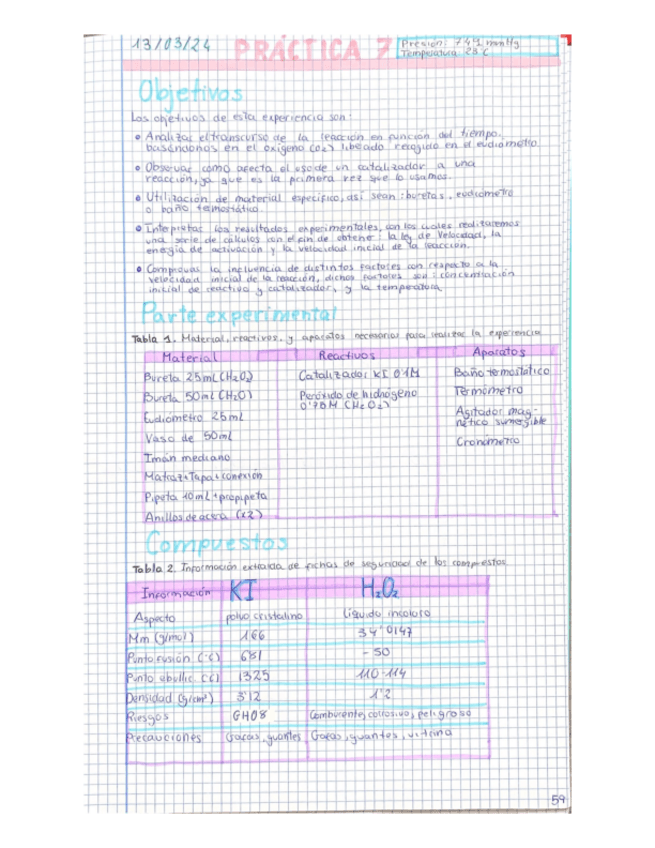 13/03/24 PRÁCTICA 7 Presión: 749 mmHg
Temperatura 23°C
Objetivos
Los objetivos de esta experiencia son:
• Analizar el transcurso de la reacción en función del tiempo,
basándonos en el oxígeno (O2) liberado recogido en el eudiómetro
• Observar como afecta el uso de un catalizador a una
reacción, ya que es la primera vez que lo usamos.
• Utilización de material específico, así sean: buretas, eudiómetro
o baño termostático.
• Interpretar los resultados experimentales, con los cuales realizaremos
una serie de cálculos con el fin de obtener: la ley de velocidad, la
energía de activación y la velocidad inicial de la reacción.
• Comprobar la influencia de distintos factores con respecto a la
velocidad inicial de la reacción, dichos factores son: concentración
inicial de reactivo y catalizador, y la temperatura
Parte experimental
Tabla 1. Material, reactivos, y aparatos necesarios para realizar la experiencia
Material Reactivos Aparatos
Bureta 25mL (H2O2) Catalizador KI 0'1M Baño termostático
Bureta 50mL (H2O) Peróxido de hidrógeno Termómetro
0'70M (H2O2)
Eudiómetro 25ml Agitador mag-
nético sumergible
Vaso de 50ml Cronómetro
Imán mediano
Matraz+Tapa+conexión
Pipeta 10mL+propipeta
Anillos de acero (x2)
Compuestos
Tabla 2. Información extraída de fichas de seguridad de los compuestos
Información KI H2O2
Aspecto polvo cristalino Líquido incoloro
Mm (g/mol) 166 34'0147
Punto fusión (°C) 681 -50
Punto ebullic. (°C) 1325 110-114
Densidad (g/cm³) 3'12 1'2
Riesgos GH08 Comburente, corrosivo, peligroso
Precauciones Gafas, guantes Gafas, guantes, vitrina
59